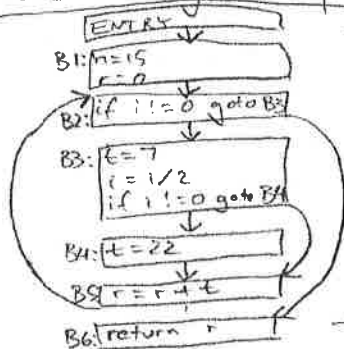 ENTRY
B1: n=15
r=0
B2: if i!=0 goto
B3: t=7
i=i/2
if i!=0 goto B4
B4: t=22
B5: r=r+t
B6: return r